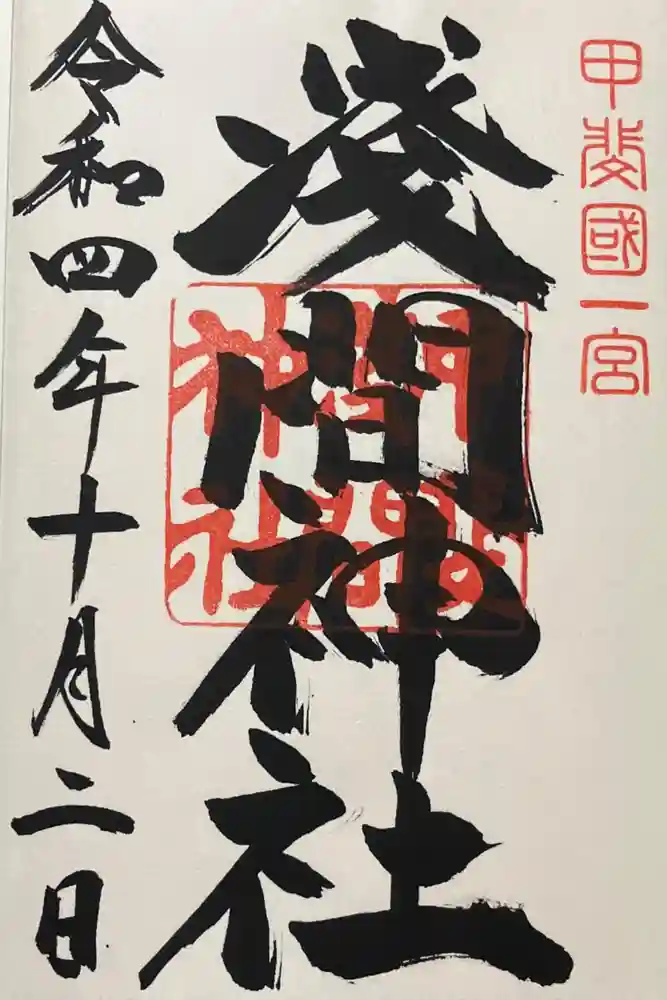 甲斐國一宮
淺間神社
淺間神社
令和四年十月二日